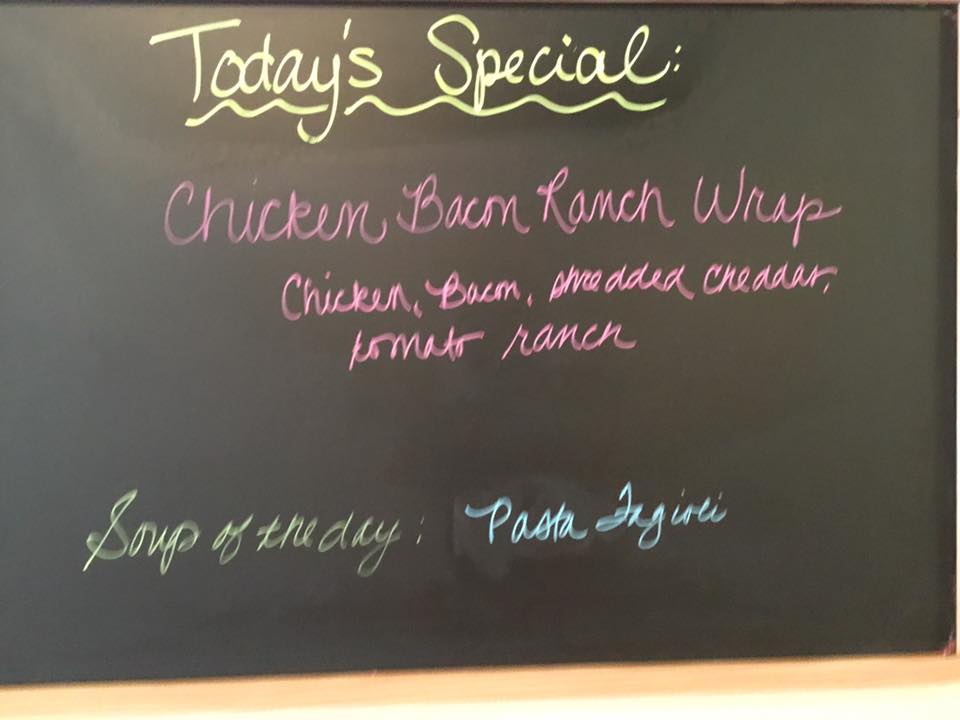 Today's Special:
Chicken Bacon Ranch Wrap
Chicken, Bacon, shredded cheddar,
tomato ranch
Soup of the day: Pasta Fagioli